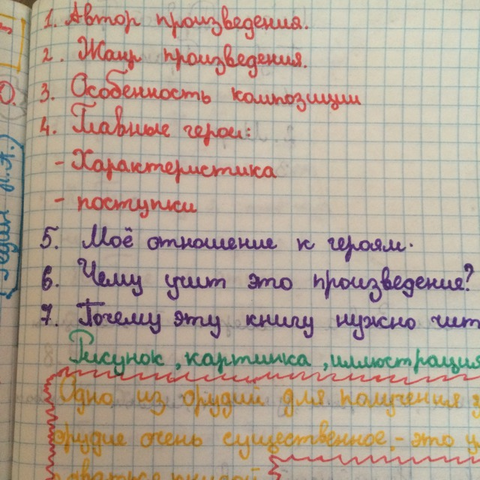 1. Автор произведения.
2. Жанр произведения.
3. Особенность композиции
4. Главные герои:
- Характеристика
- поступки
5. Моё отношение к героям.
6. Чему учит это произведение?
7. Почему эту книгу нужно чит
Рисунок, картинка, иллюстрация
Одно из орудий для получения
орудие очень существенное, - это